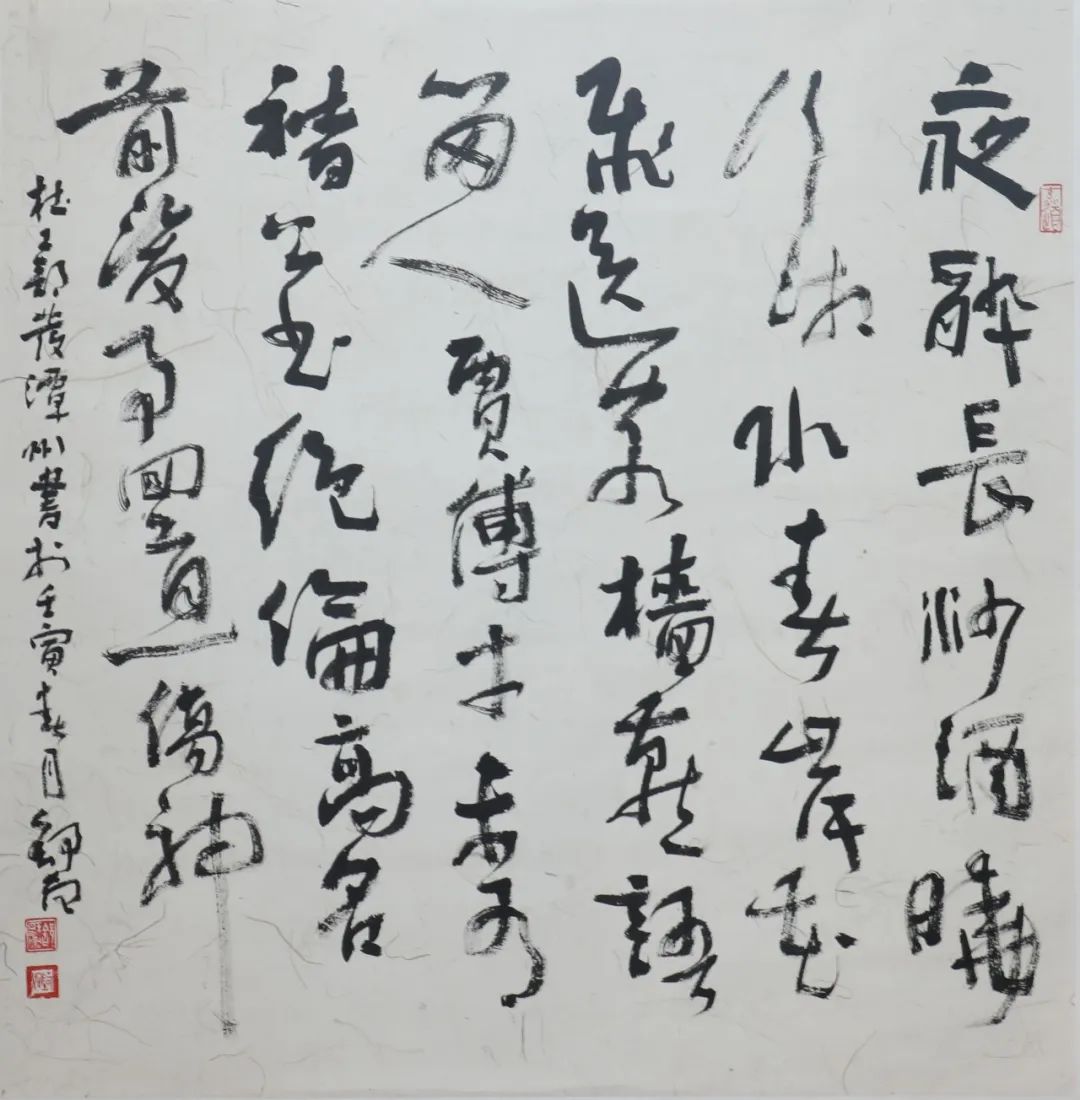 夜醉長沙酒曉
行湘水春岸花
飛送客檣燕語
留人賈傅才未有
褚公書絕倫高名
前後事回首一傷神
杜工部發潭州書於壬寅春月